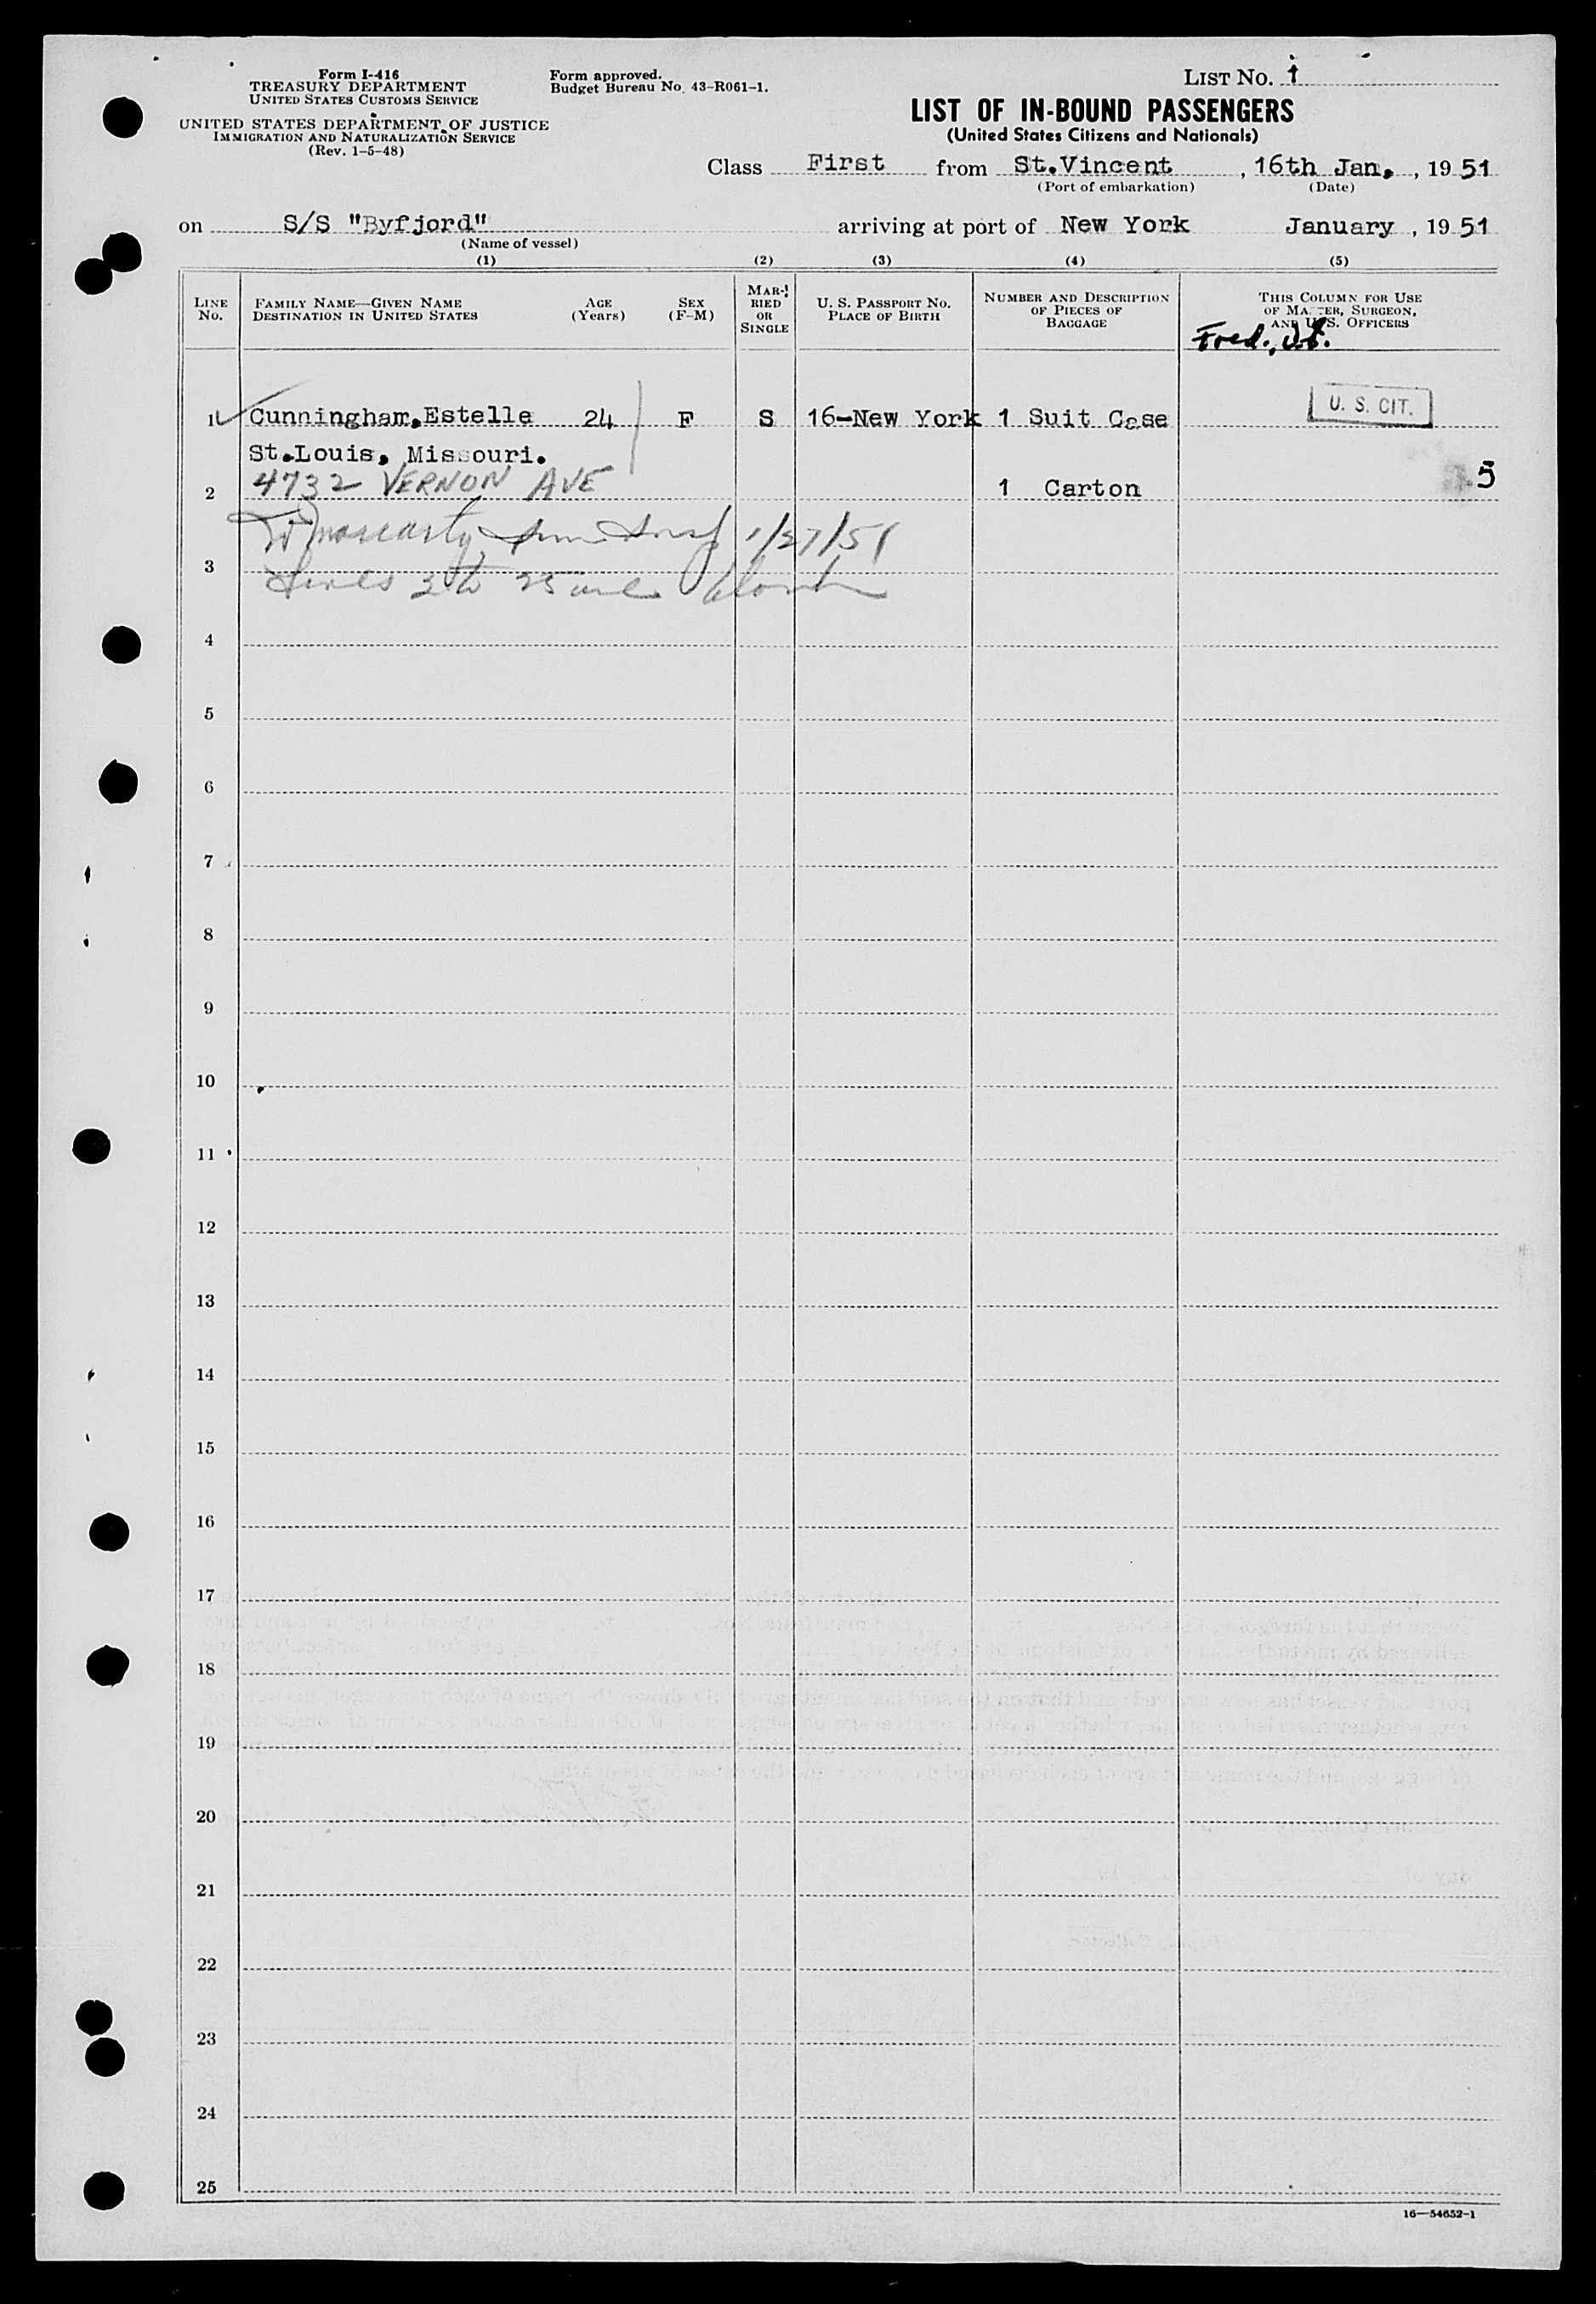 Form I-416
TREASURY DEPARTMENT
UNITED STATES CUSTOMS SERVICE
UNITED STATES DEPARTMENT OF JUSTICE
IMMIGRATION AND NATURALIZATION SERVICE
(Rev. 1-5-48)
Form approved.
Budget Bureau No. 43-R061-1.
LIST NO. 1
LIST OF IN-BOUND PASSENGERS
(United States Citizens and Nationals)
Class First from St.Vincent, 16th Jan., 1951
(Port of embarkation) (Date)
on S/S "Byfjord" arriving at port of New York January, 1951
(Name of vessel)
(1) (2) (3) (4) (5)
LINE NO.
FAMILY NAME—GIVEN NAME
DESTINATION IN UNITED STATES
AGE (Years)
SEX (F-M)
MARRIED OR SINGLE
U. S. PASSPORT NO.
PLACE OF BIRTH
NUMBER AND DESCRIPTION OF PIECES OF BAGGAGE
THIS COLUMN FOR USE OF MASTER, SURGEON, AND U. S. OFFICERS
Fred.,
1 Cunningham,Estelle 24 F S 16-New York 1 Suit Case U. S. CIT.
St.Louis, Missouri.
4732 VERNON AVE
2 1 Carton 5
1/27/51
3
4
5
6
7
8
9
10
11
12
13
14
15
16
17
18
19
20
21
22
23
24
25
16—54652-1